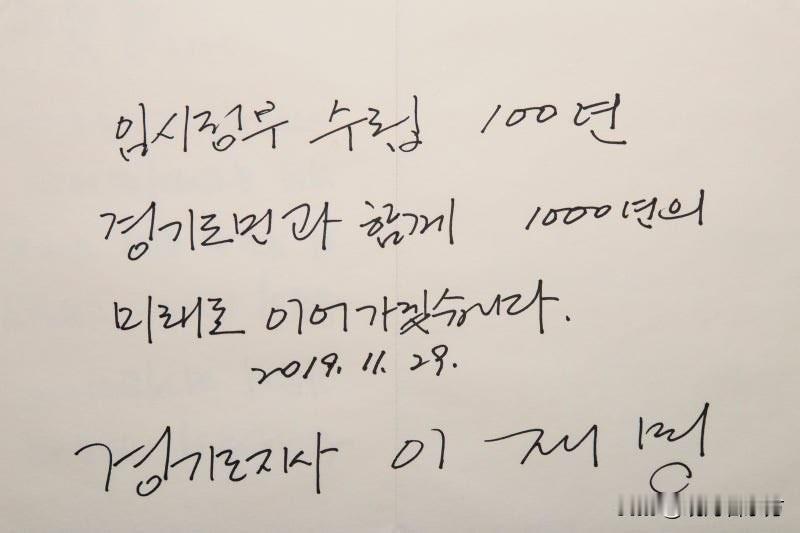 임시정부 수립 100년
경기도민과 함께 1000년의
미래로 이어가겠습니다.
2019. 11. 29.
경기도지사 이재명